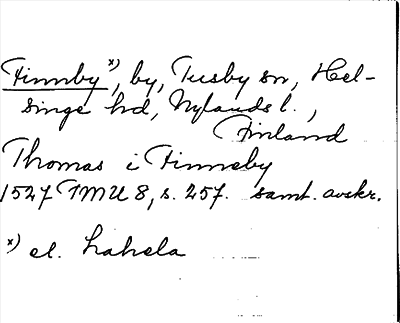 Finnby x), by, Tusby sn, Hel-
singe hd, Nylands l.,
Finland
Thomas i Finneby
1527 FMU 8, s. 257. samt. avskr.
x) el. Lahela